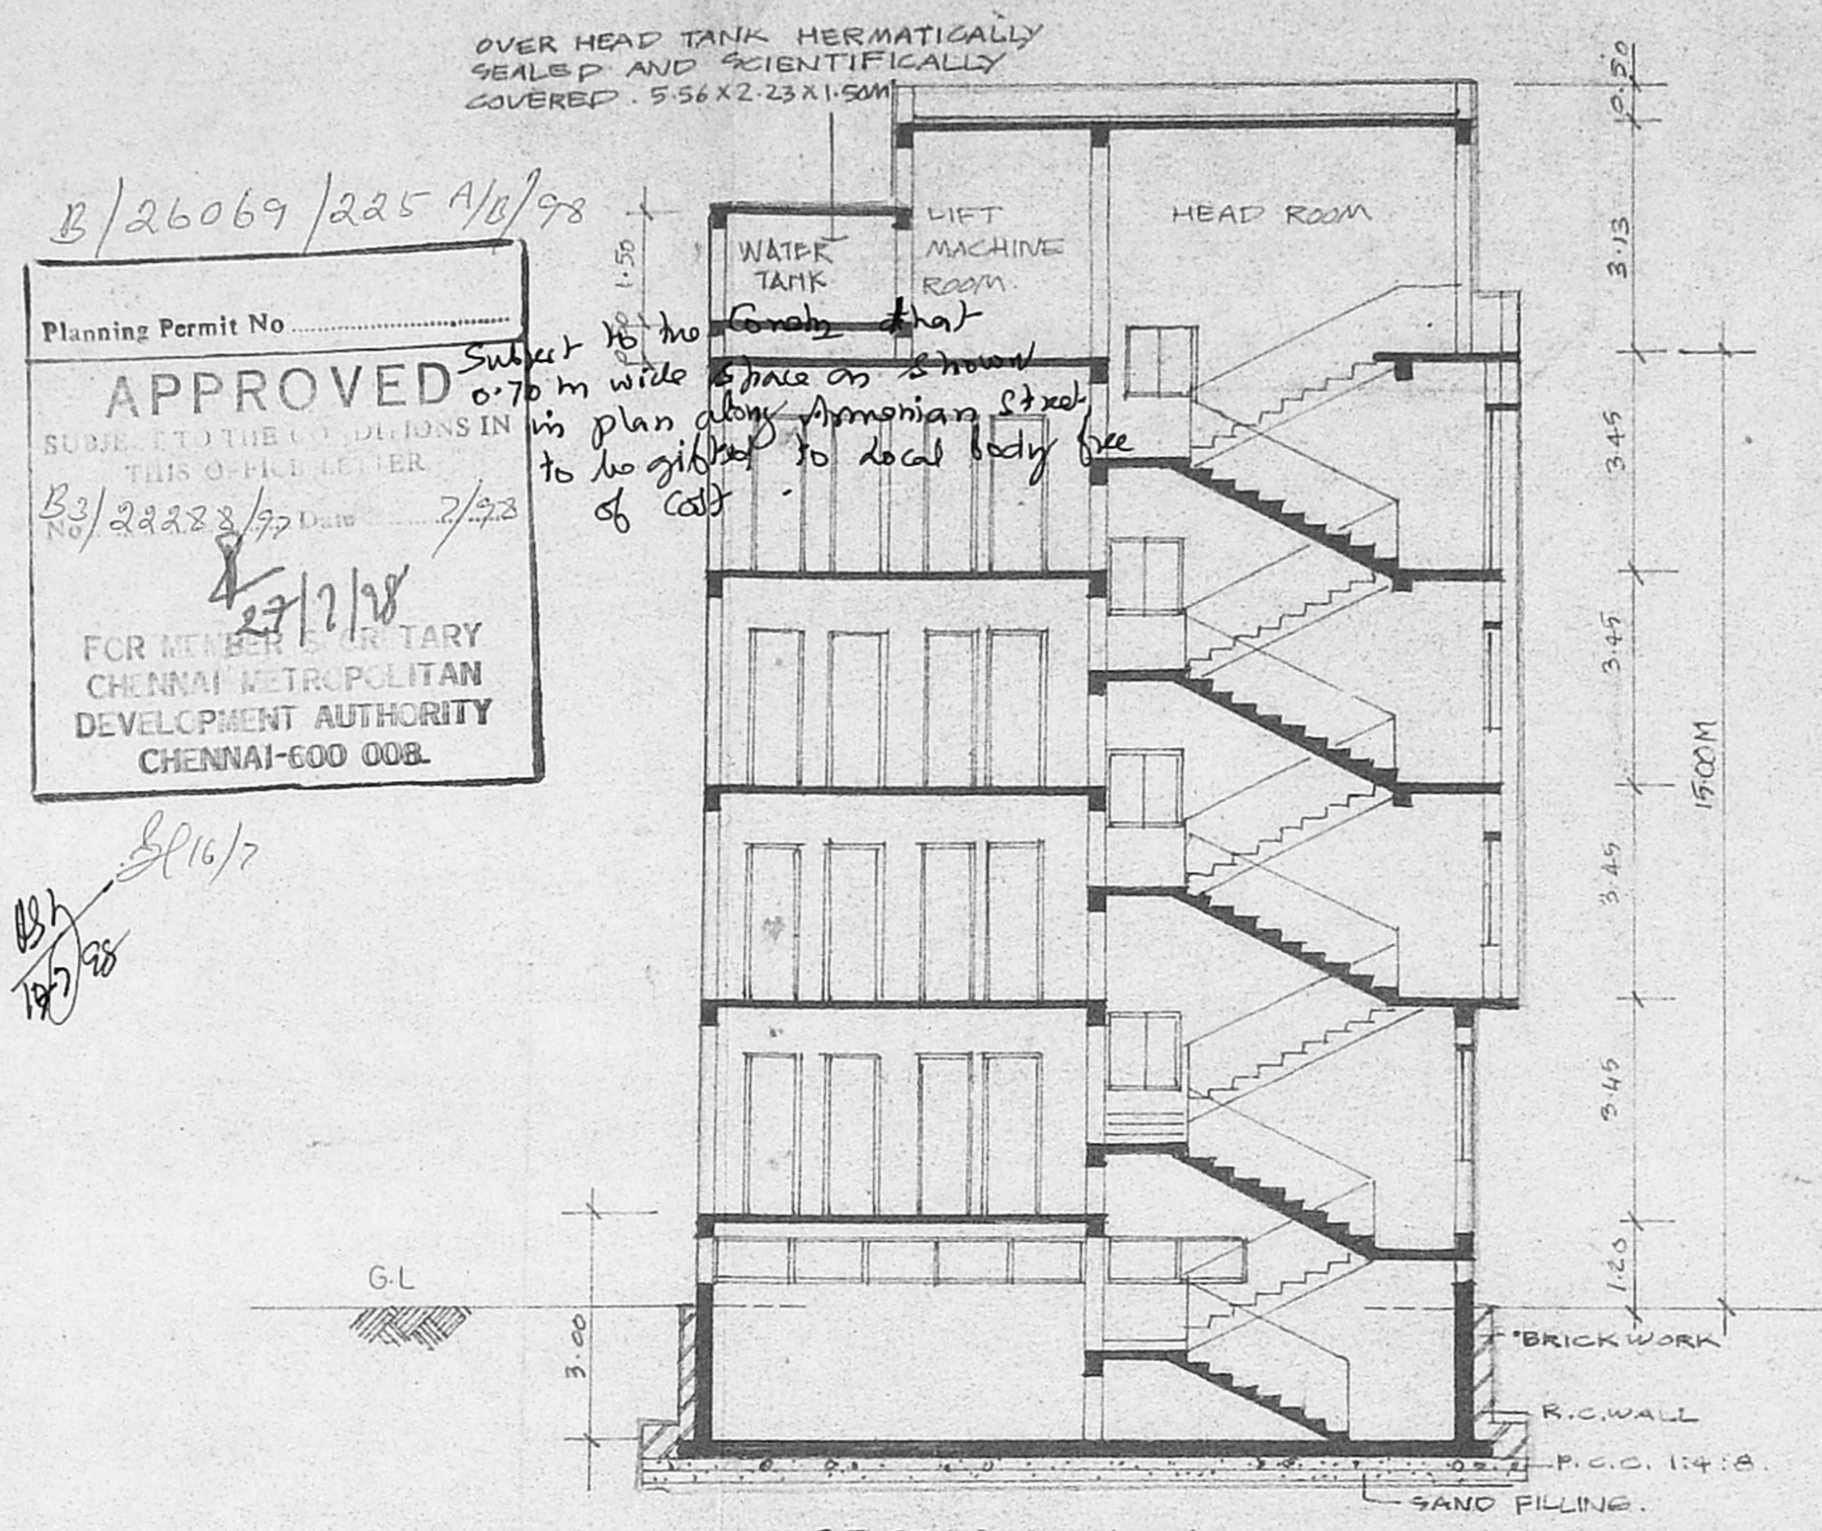 OVER HEAD TANK HERMATICALLY
SEALED AND SCIENTIFICALLY
COVERED. 5.56X2.23X1.50M
B/26069/225 A/B/98
Planning Permit No
APPROVED
SUBJECT TO THE CONDITIONS IN
THIS OFFICE LETTER
B3/22288/97 Date 7/98
No
27/7/98
FOR MEMBER SECRETARY
CHENNAI METROPOLITAN
DEVELOPMENT AUTHORITY
CHENNAI-600 008.
16/7
Subject to the that
0.70 m wide space as shown
in plan along Armenian Street
to be gifted to Local body free
of cost.
WATER
TANK
LIFT
MACHINE
ROOM.
HEAD ROOM
1.50
0.50
3.13
3.45
3.45
3.45
3.45
1.20
15.00M
G.L
3.00
BRICK WORK
R.C.WALL
P.C.C. 1:4:8.
SAND FILLING.